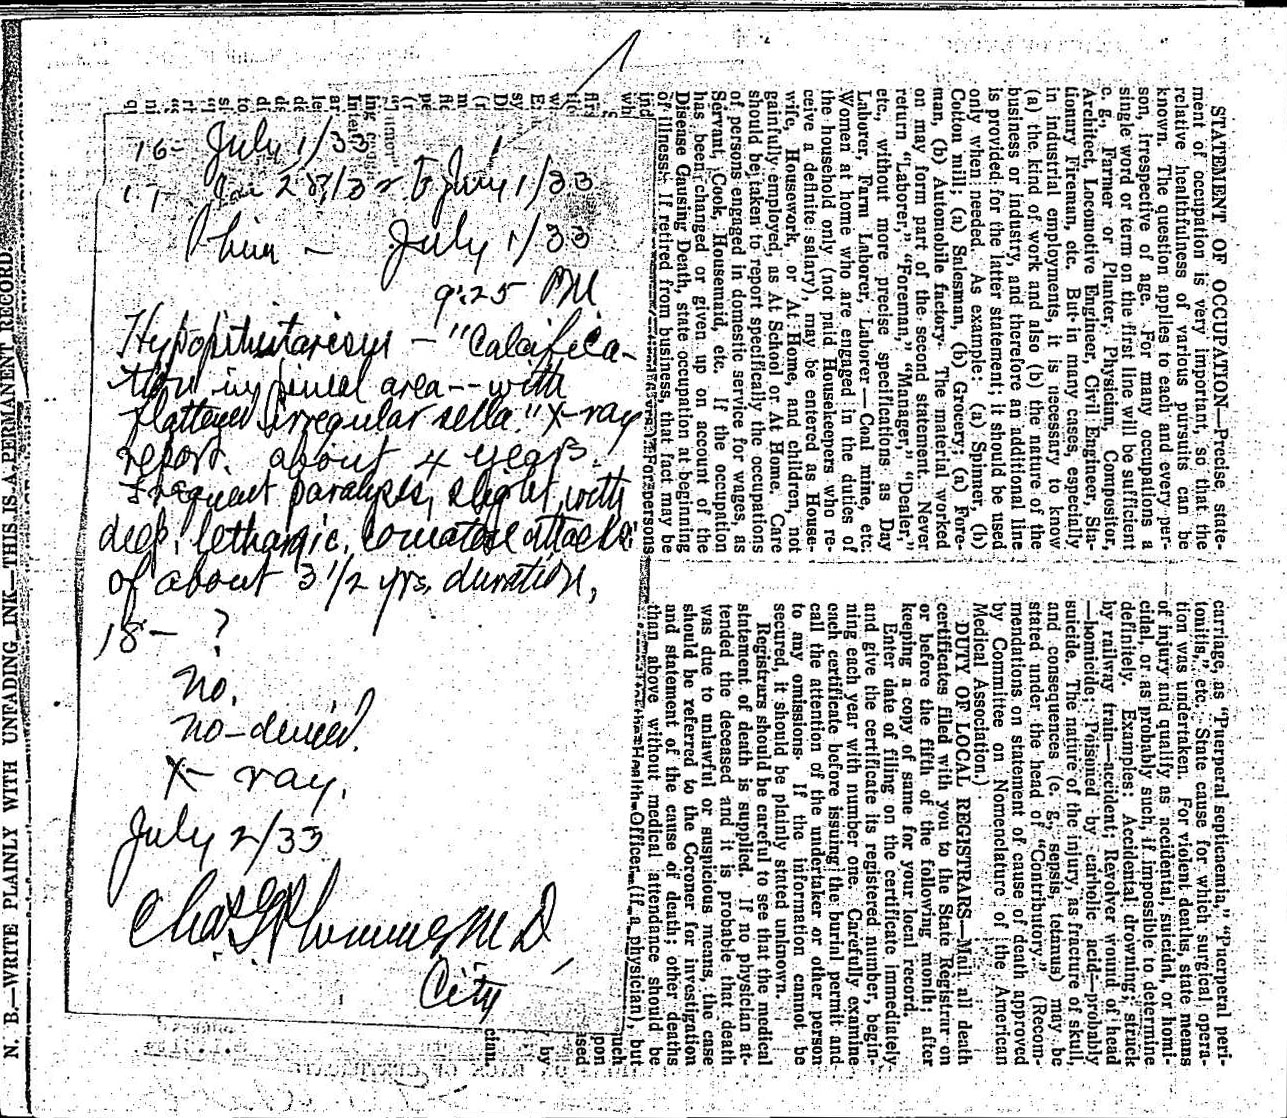 16- July 1/33
17- Jan 28/32 to July 1/33
him - July 1/33
9:25 PM
Hypopituitarism - "Calcifica-
tion in pineal area -- with
flattened irregular sella." X-ray
report. about 4 years.
Frequent paralysis, slight, with
deep, lethargic, comatose attacks
of about 3 1/2 yrs. duration,
18- ?
No.
No-denied.
X-ray.
July 2/33
Chas M D
City
STATEMENT OF OCCUPATION—Precise state-
ment of occupation is very important, so that the
relative healthfulness of various pursuits can be
known. The question applies to each and every per-
son, irrespective of age. For many occupations a
single word or term on the first line will be sufficient
e. g., Farmer or Planter, Physician, Compositor,
Architect, Locomotive Engineer, Civil Engineer, Sta-
tionary Fireman, etc. But in many cases, especially
in industrial employments, it is necessary to know
(a) the kind of work and also (b) the nature of the
business or industry, and therefore an additional line
is provided for the latter statement; it should be used
only when needed. As example: (a) Spinner, (b)
Cotton mill; (a) Salesman, (b) Grocery; (a) Fore-
man, (b) Automobile factory. The material worked
on may form part of the second statement. Never
return "Laborer," "Foreman," "Manager," "Dealer,"
etc., without more precise specifications as Day
Laborer, Farm Laborer, Laborer—Coal mine, etc.
Women at home who are engaged in the duties of
the household only (not paid Housekeepers who re-
ceive a definite salary), may be entered as House-
wife, Housework, or At Home, and children, not
gainfully employed, as At School or At Home. Care
should be taken to report specifically the occupations
of persons engaged in domestic service for wages, as
Servant, Cook, Housemaid, etc. If the occupation
has been changed or given up on account of the
Disease Causing Death, state occupation at beginning
of illness. If retired from business, that fact may be
For persons
carriage, as "Puerperal septicaemia," "Puerperal peri-
tonitis," etc. State cause for which surgical opera-
tion was undertaken. For violent deaths, state means
of injury and qualify as accidental, suicidal, or homi-
cidal, or as probably such, if impossible to determine
definitely. Examples: Accidental drowning; struck
by railway train—accident; Revolver wound of head
—homicide; Poisoned by carbolic acid—probably
suicide. The nature of the injury, as fracture of skull,
and consequences (e. g., sepsis, tetanus) may be
stated under the head of "Contributory." (Recom-
mendations on statement of cause of death approved
by Committee on Nomenclature of the American
Medical Association.)
DUTY OF LOCAL REGISTRARS—Mail all death
certificates filed with you to the State Registrar on
or before the fifth of the following month; after
keeping a copy of same for your local record.
Enter date of filing on the certificate immediately
and give the certificate its registered number, begin-
ning each year with number one. Carefully examine
each certificate before issuing the burial permit and
call the attention of the undertaker or other person
to any omissions. If the information cannot be
secured, it should be plainly stated unknown.
Registrars should be careful to see that the medical
statement of death is supplied. If no physician at-
tended the deceased and it is probable that death
was due to unlawful or suspicious means, the case
should be referred to the Coroner for investigation
and statement of the cause of death; other deaths
than above without medical attendance should be
Health Officer (if a physician), but
N. B.—WRITE PLAINLY WITH UNFADING INK—THIS IS A PERMANENT RECORD